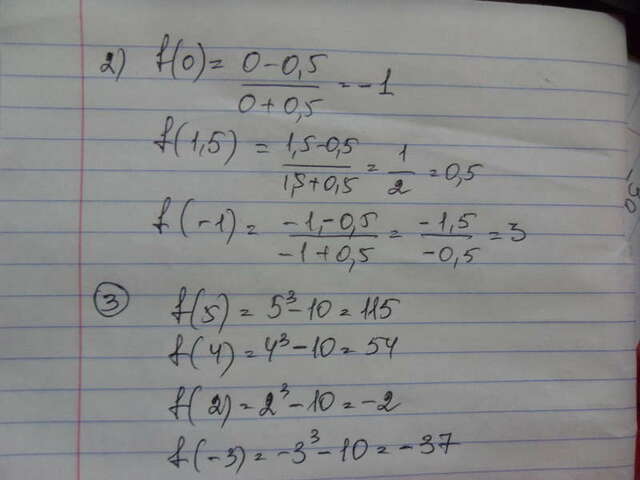 2) f(0) = (0-0,5)/(0+0,5) = -1
f(1,5) = (1,5-0,5)/(1,5+0,5) = 1/2 = 0,5
f(-1) = (-1,-0,5)/(-1+0,5) = (-1,5)/(-0,5) = 3
③ f(5) = 5³-10 = 115
f(4) = 4³-10 = 54
f(2) = 2³-10 = -2
f(-3) = -3³-10 = -37